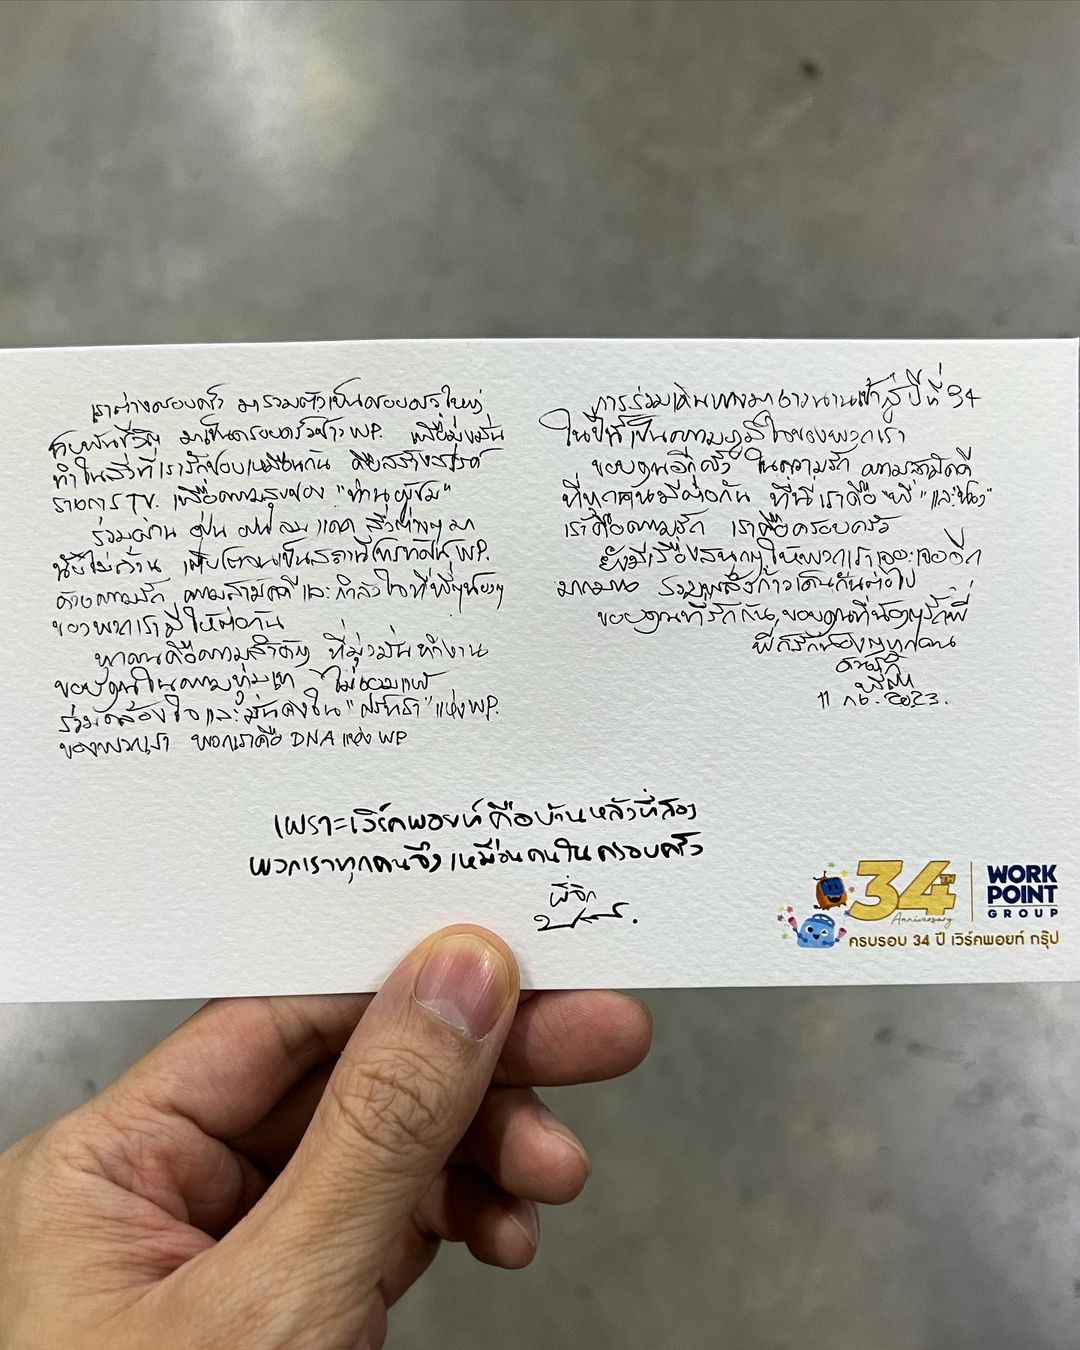 เราต่างครอบครัว มารวมตัวเป็นครอบครัวใหญ่
มาเป็นครอบครัวชาว WP. เพื่อมุ่งมั่น
ทำในสิ่งที่เรารักชอบเหมือนกัน คือสร้างสรรค์
รายการ TV. เพื่อความสุขของ "ท่านผู้ชม"
ร่วมผ่าน ฝุ่น ฝน ลม แดด สิ่งต่างๆ มา
นับไม่ถ้วน เติบโตจนเป็นสถานีโทรทัศน์ WP.
ด้วยความรัก ความสามัคคี และกำลังใจที่พี่ๆน้องๆ
ของพวกเรามีให้ต่อกัน
ทุกคนคือความสำคัญ ที่มุ่งมั่นทำงาน
ขอบคุณในความทุ่มเท ไม่ยอมแพ้
ร่วมคล้องใจและมั่นคงใน "ศรัทธา" แห่ง WP.
ของพวกเรา พวกเราคือ DNA แห่ง WP
การร่วมเดินทางมายาวนานเข้าสู่ปีที่ 34
ในปีที่เป็นความภูมิใจของพวกเรา
ขอบคุณอีกครั้ง ในความรัก ความสามัคคี
ที่ทุกคนมีต่อกัน ที่นี่เราคือ "พี่" และ "น้อง"
เราคือความรัก เราคือครอบครัว
ยังมีเรื่องสนุกๆ ให้พวกเราเจอะเจออีก
มากมาย รวมพลังก้าวเดินกันต่อไป
ขอบคุณที่รักกัน, ขอบคุณที่น้องๆรักพี่
พี่ก็รักน้องๆทุกคน
ด้วยรัก
11 กย. 2023.
เพราะเวิร์คพอยท์คือบ้านหลังที่สอง
พวกเราทุกคนจึงเหมือนคนในครอบครัว
พี่จิก
34TH Anniversary
WORK POINT GROUP
ครบรอบ 34 ปี เวิร์คพอยท์ กรุ๊ป